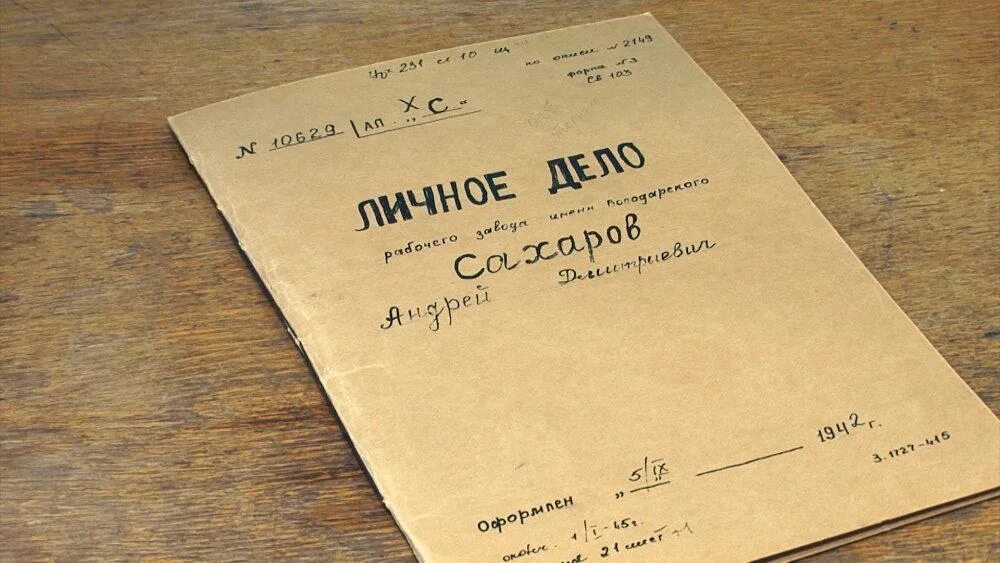 231 10
по описи № 2149
форма № 3
СБ 103
Х
N 10629 АП. „С“
ЛИЧНОЕ ДЕЛО
рабочего завода имени Володарского
Сахаров
Андрей Дмитриевич
Оформлен „5/IX — 1942 г.
3.1727-415
1/I-45г.
21